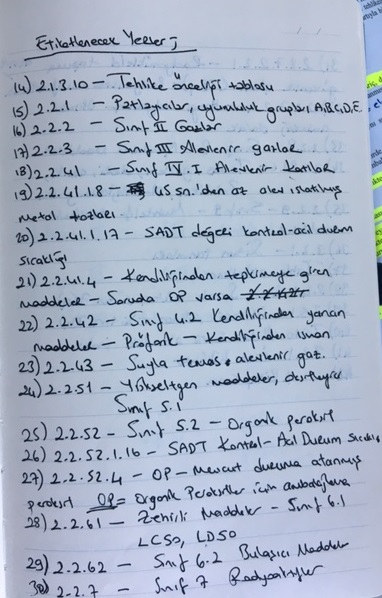 Etiketlenecek Yerler;
14) 2.1.3.10 – Tehlike önceliği tablosu
15) 2.2.1 – Patlayıcılar, uyumluluk grupları A,B,C,D,E.
16) 2.2.2 – Sınıf II Gazlar
17) 2.2.3 – Sınıf III Alevlenir gazlar
18) 2.2.41 – Sınıf IV.I Alevlenir Katılar
19) 2.2.41.1.8 – 45 sn.'den az alev
metal tozları.
20) 2.2.41.1.17 – SADT değeri kontrol-acil durum
sıcaklığı
21) 2.2.41.4 – Kendiliğinden tepkimeye giren
maddeler – Soruda OP varsa
22) 2.2.42 – Sınıf 4.2 Kendiliğinden yanan
maddeler – Piroforik – Kendiliğinden ısınan
23) 2.2.43 – Suyla temas. alevlenir gaz.
24) 2.2.51 – Yükseltgen maddeler,
Sınıf 5.1
25) 2.2.52 – Sınıf 5.2 – Organik peroksit
26) 2.2.52.1.16 – SADT Kontrol – Acil Durum Sıcaklığı
27) 2.2.52.4 – OP – Mevcut duruma atanmış
peroksit OP = Organik Peroksitler için ambalajlama
28) 2.2.61 – Zehirli Maddeler – Sınıf 6.1
LC50, LD50
29) 2.2.62 – Sınıf 6.2 Bulaşıcı Maddeler
30) 2.2.7 – Sınıf 7 Radyoaktifler